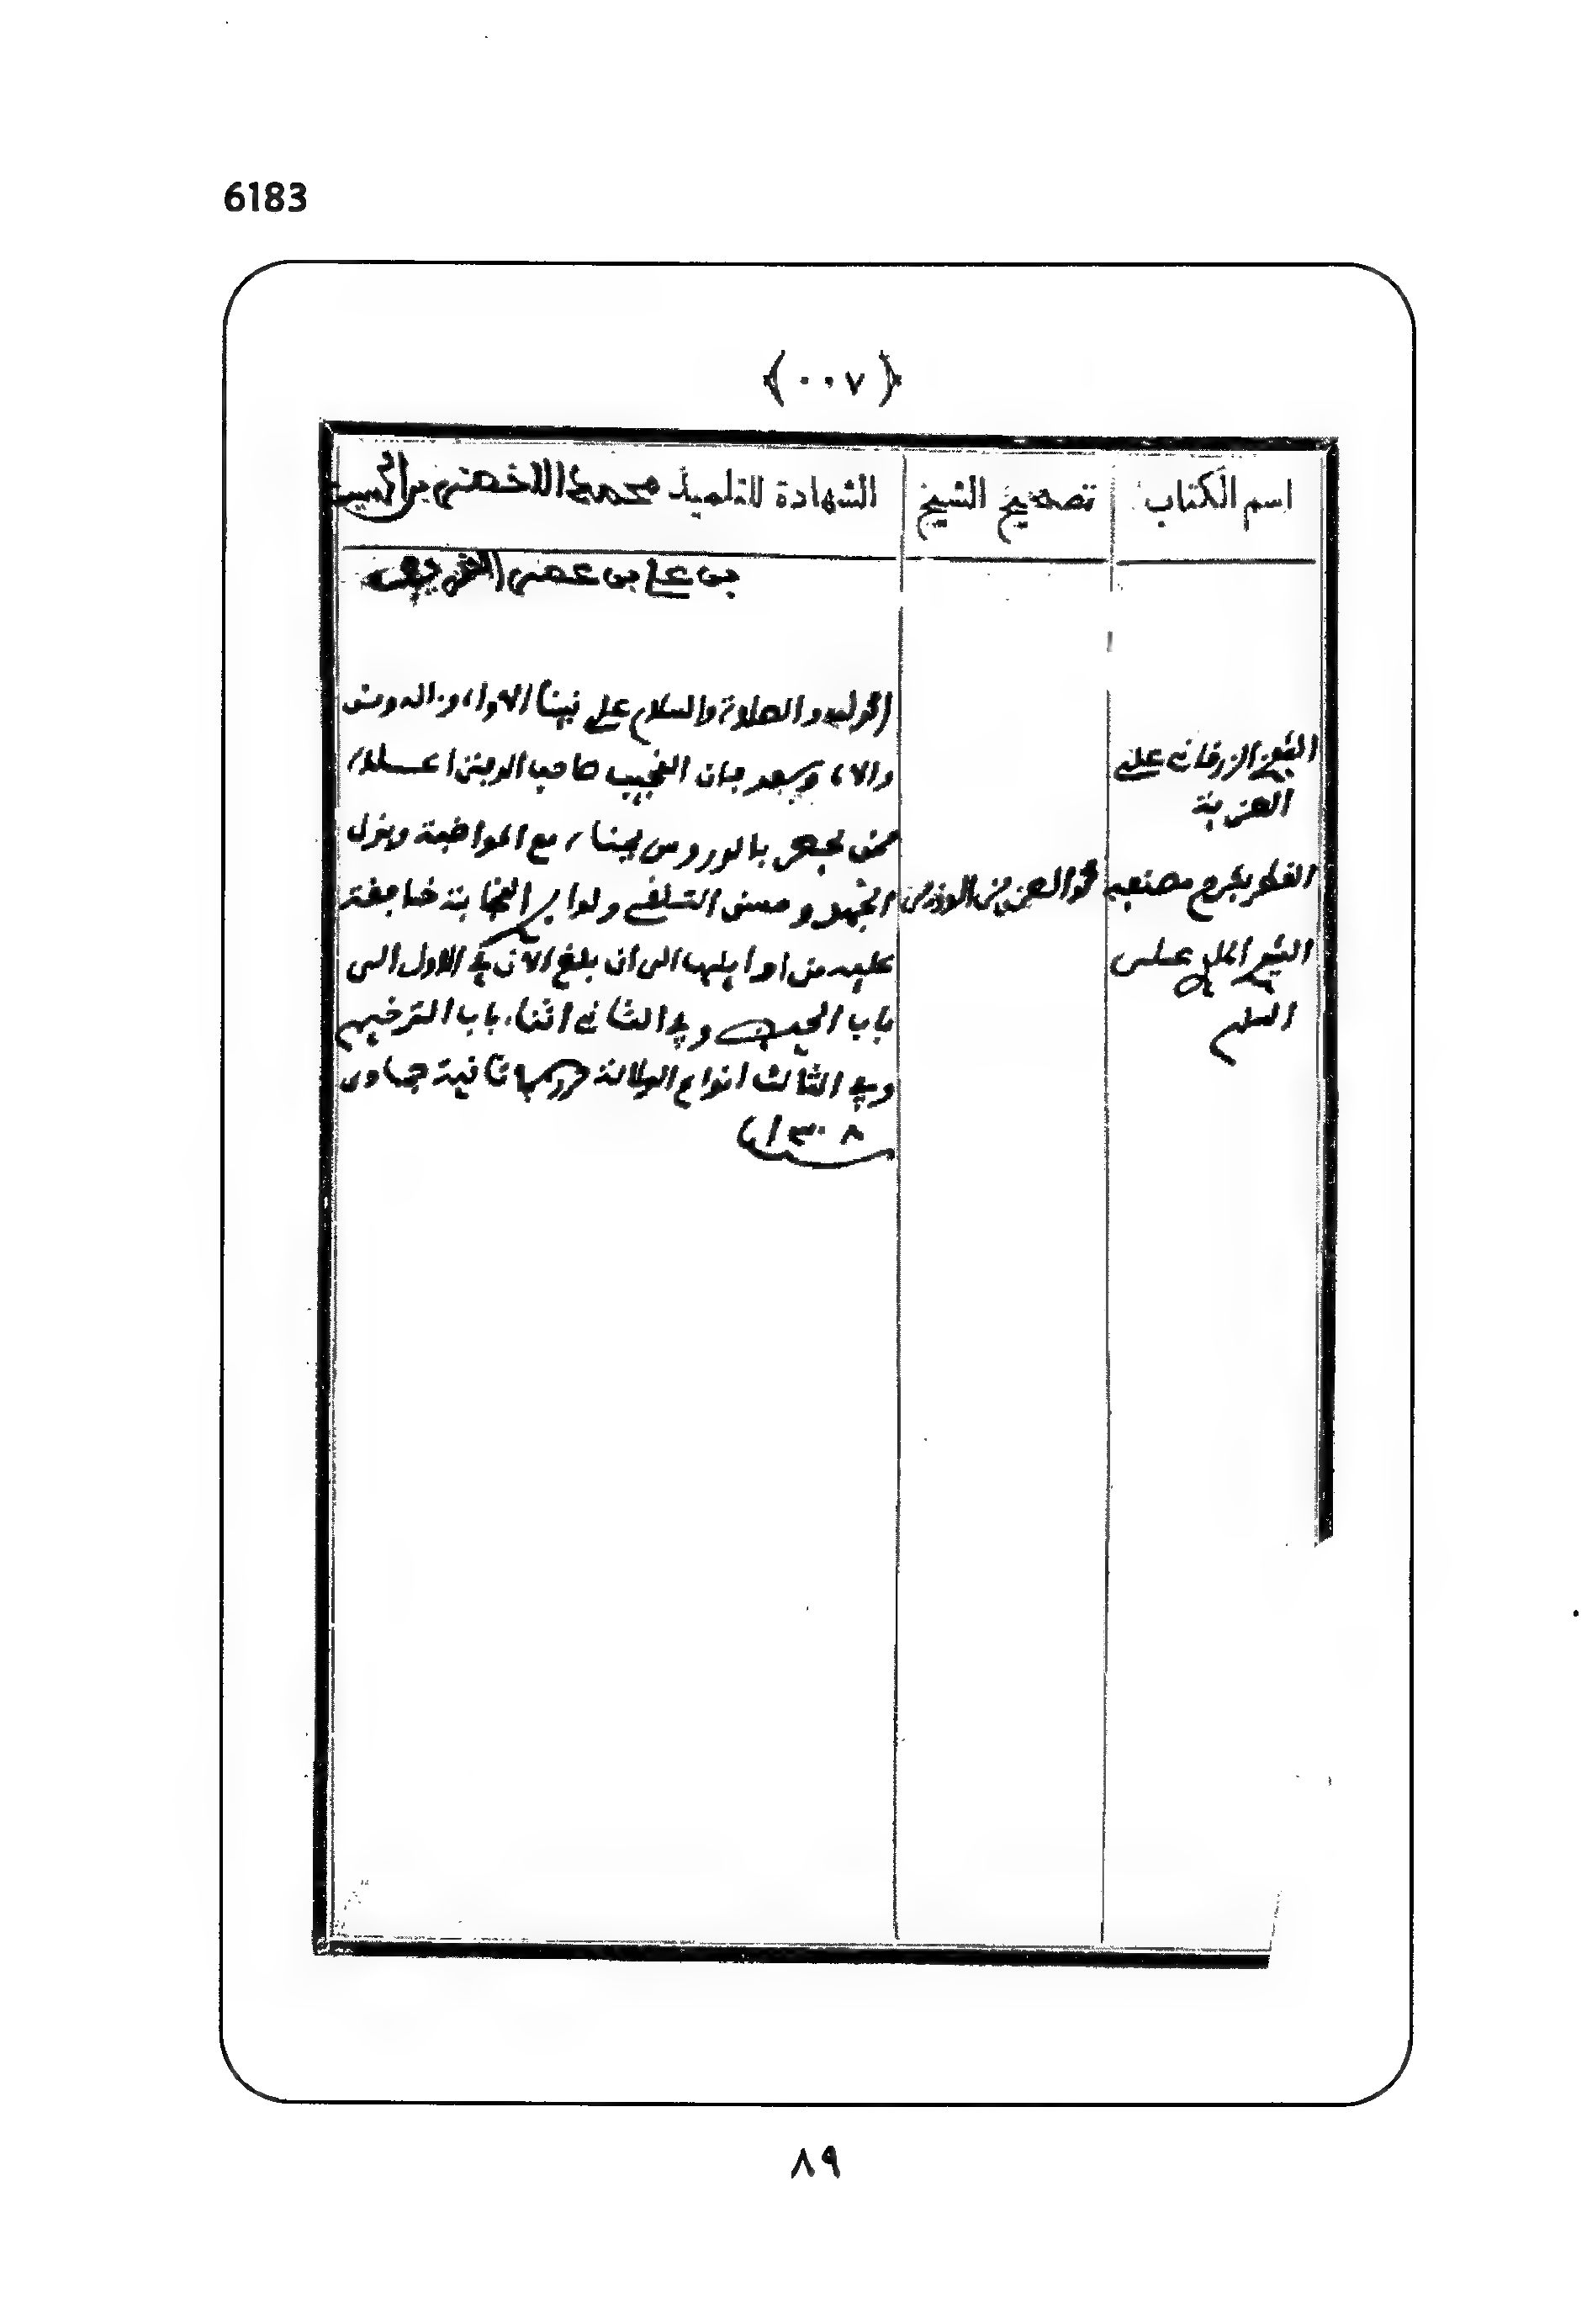 6183
﴿ ٠٠٧ ﴾
اسم الكتاب
تصحيح الشيخ
الشهادة للتلميذ محمد الاخضر بن الحسين
بن علي بن عمر
الشيخ الزرقاني على
العزية
القطر بشرح مصنفه
الشيخ الملوي على
السلم
محمد العزيز الوزير
الحمد لله والصلاة والسلام على نبينا الاواه وءاله ومن
والاه وبعد فان النجيب صاحبي الوجه اعلاه
ممن يحضر بالدروس لدينا مع المواظبة وبذل
الجهد وحسن التلقي ولدا
عليه من اوايلها الى أن بلغ الآن في الاول الى
باب الحيض وفي الثاني اثناء باب الترخيم
وفي الثالث انواع الدلالة ثانية جمادى
١٣٠٨
٨٩